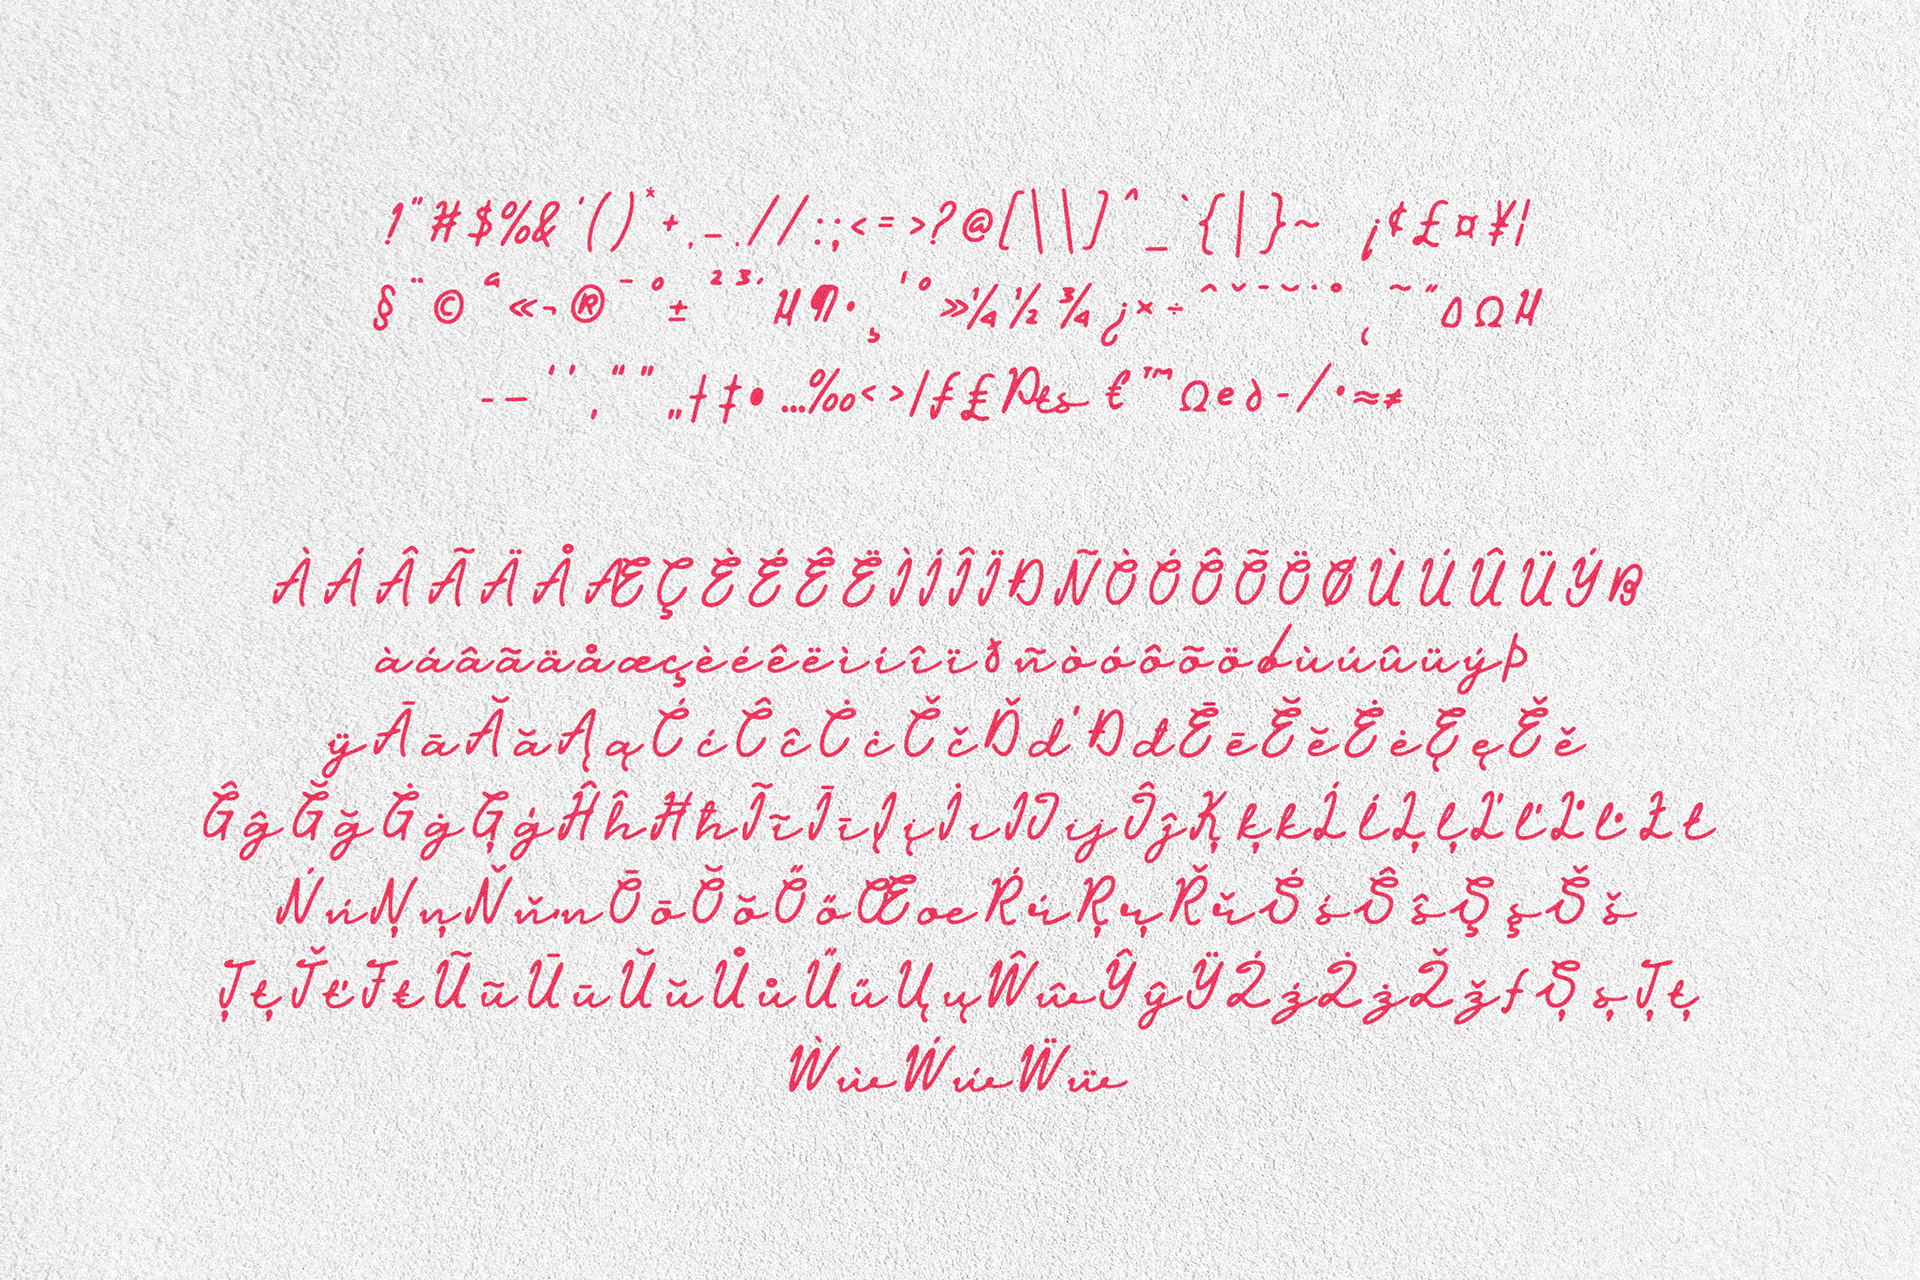 ! " # $ % & ' ( ) * + , - . / / : ; < = > ? @ [ \ \ ] ^ _ ` { | } ~ ¡ ¢ £ ¤ ¥ ¦
§ ¨ © ª « ¬ ® ¯ ° ± ² ³ ´ µ ¶ · ¸ ¹ º » ¼ ½ ¾ ¿ × ÷ ˆ ˇ ˉ ˘ ˙ ˚ ˛ ˜ ˝ Δ Ω μ
– — ‘ ’ ‚ “ ” „ † ‡ • … ‰ ‹ › ⁄ ƒ ₤ ₧ € ™ Ω ℮ ∂ − ∕ ∙ ≈ ≠
À Á Â Ã Ä Å Æ Ç È É Ê Ë Ì Í Î Ï Ð Ñ Ò Ó Ô Õ Ö Ø Ù Ú Û Ü Ý ß
à á â ã ä å æ ç è é ê ë ì í î ï ð ñ ò ó ô õ ö ø ù ú û ü ý þ
ÿ Ā ā Ă ă Ą ą Ć ć Ĉ ĉ Ċ ċ Č č Ď ď Đ đ Ē ē Ĕ ĕ Ė ė Ę ę Ě ě
Ĝ ĝ Ğ ğ Ġ ġ Ģ ģ Ĥ ĥ Ħ ħ Ĩ ĩ Ī ī Į į İ ı Ĳ ĳ Ĵ ĵ Ķ ķ ĸ Ĺ ĺ Ļ ļ Ľ ľ Ŀ ŀ Ł ł
Ń ń Ņ ņ Ň ň ŉ Ō ō Ŏ ŏ Ő ő Œ œ Ŕ ŕ Ŗ ŗ Ř ř Ś ś Ŝ ŝ Ş ş Š š
Ţ ţ Ť ť Ŧ ŧ Ũ ũ Ū ū Ŭ ŭ Ů ů Ű ű Ų ų Ŵ ŵ Ŷ ŷ Ÿ Ź ź Ż ż Ž ž ƒ Ș ș Ț ț
Ẁ ẁ Ẃ ẃ Ẅ ẅ